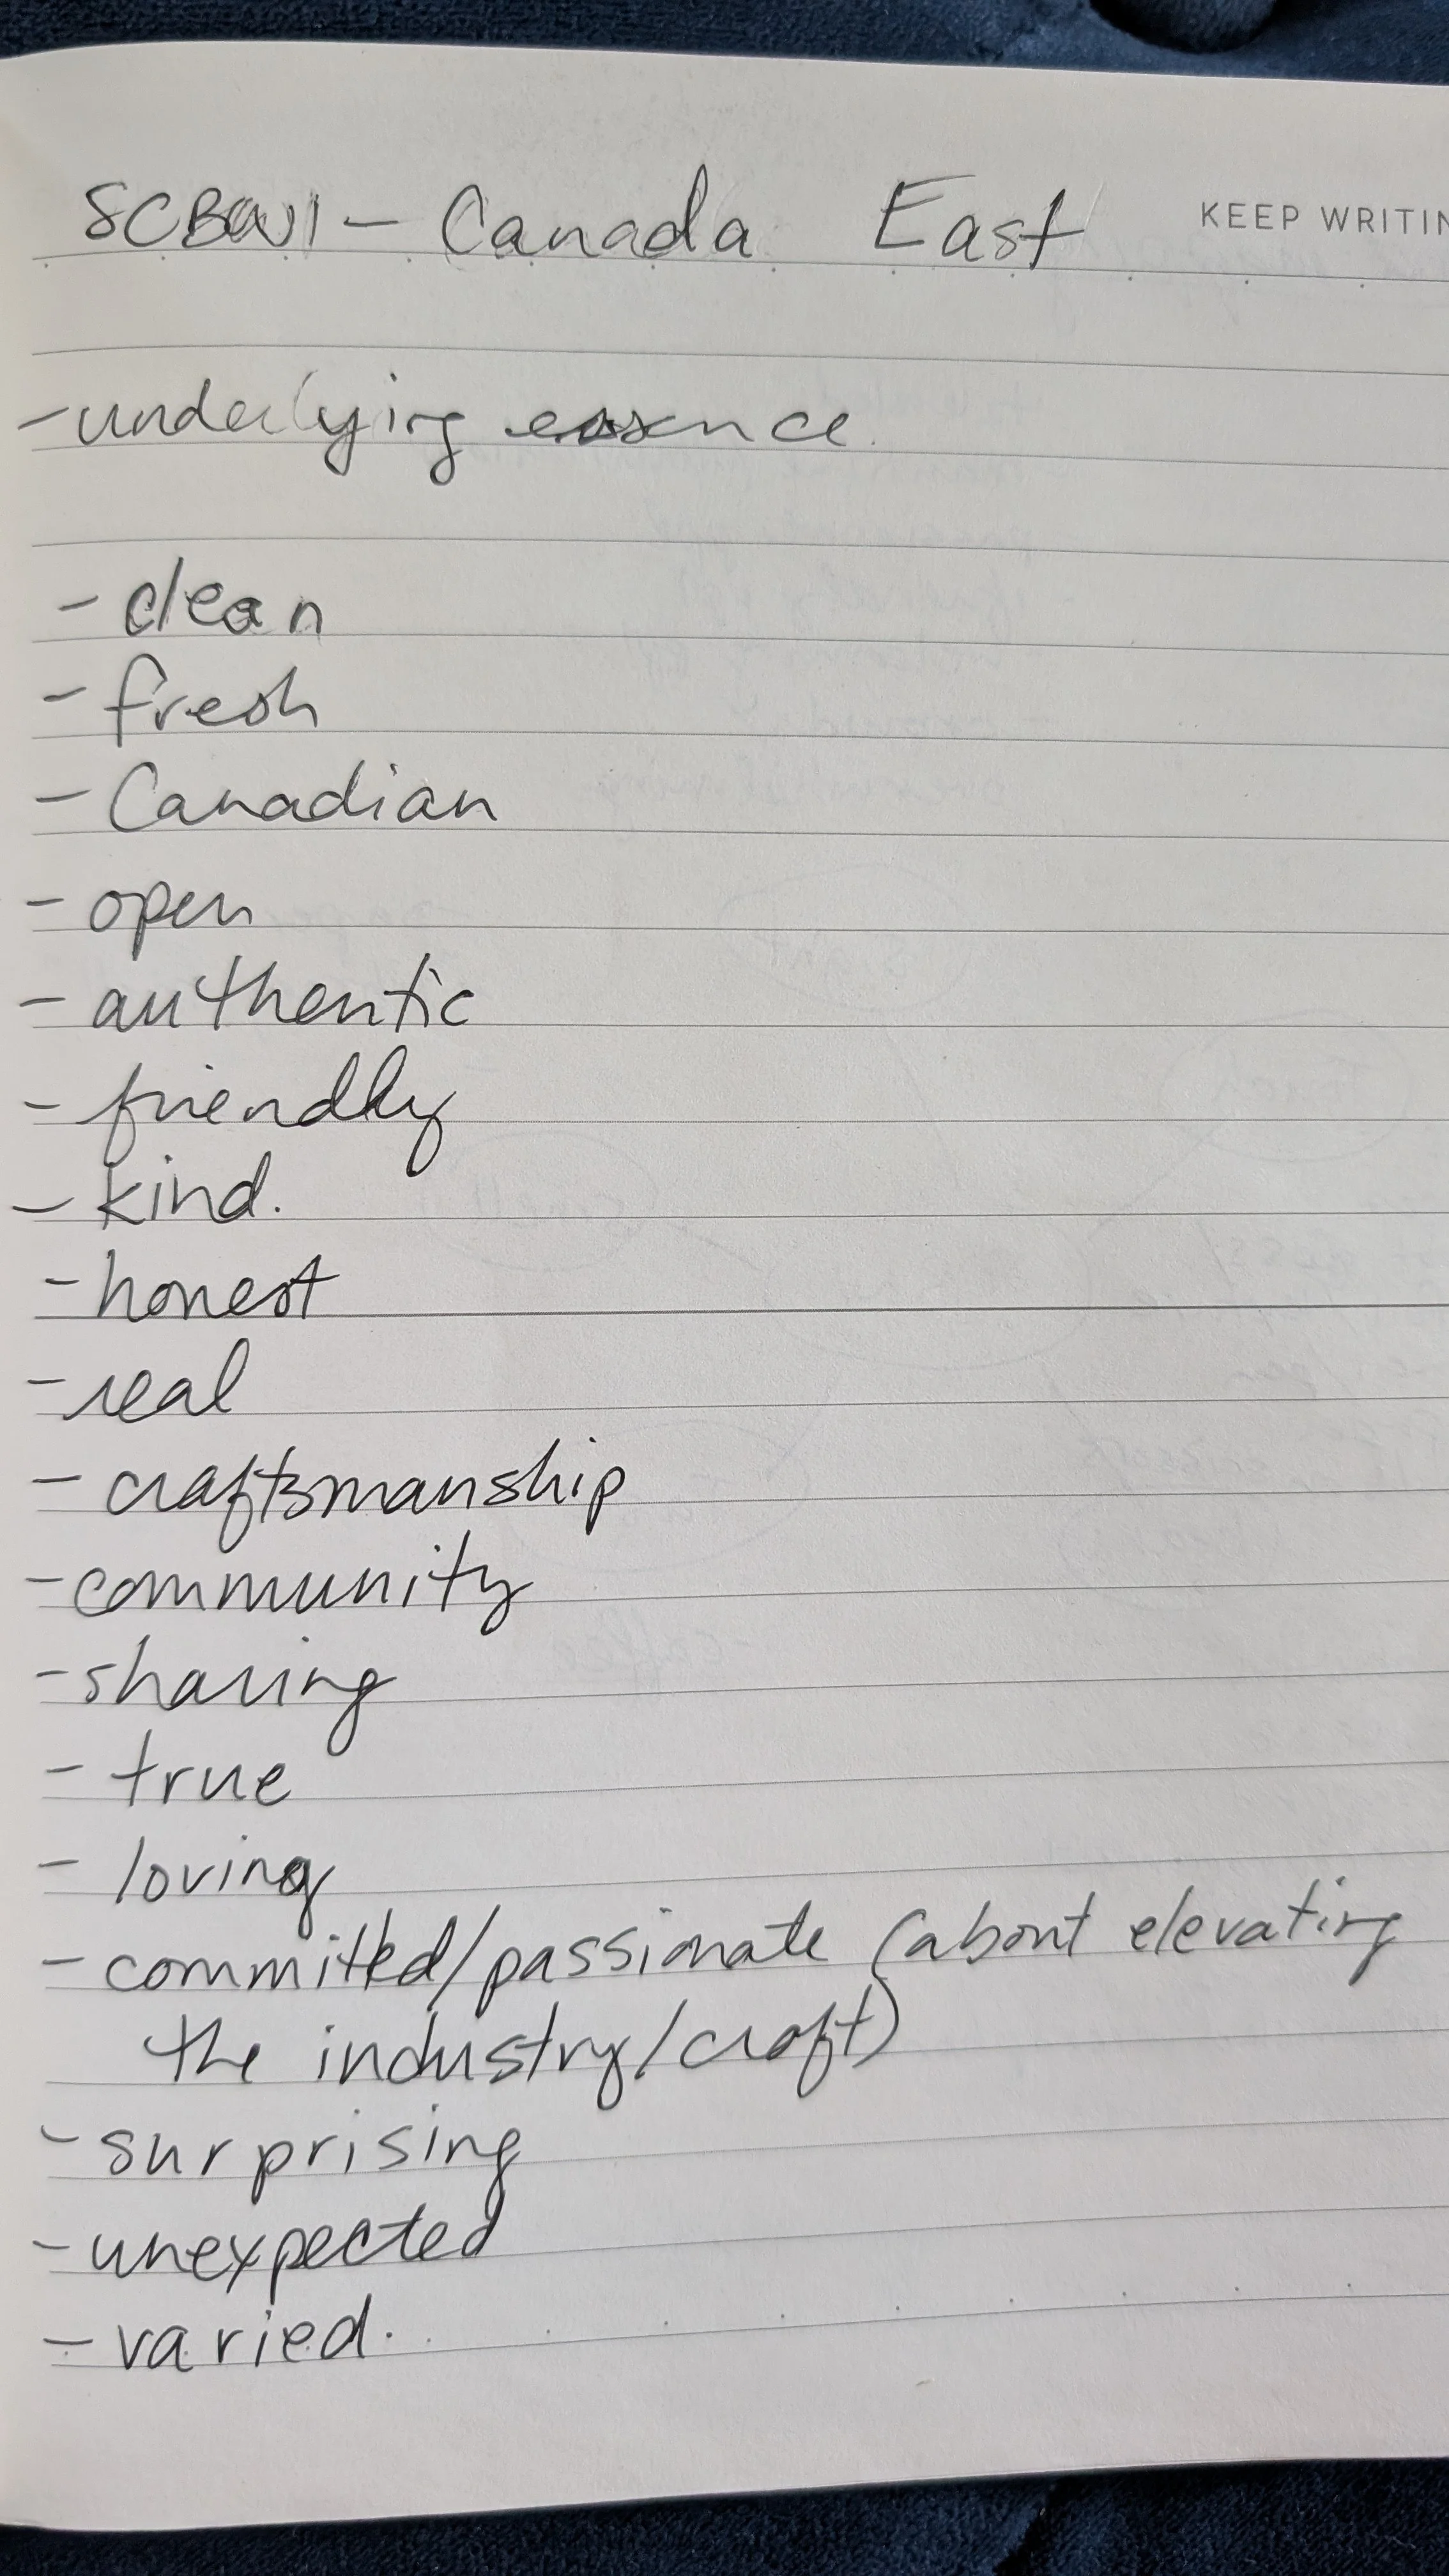 SCBWI - Canada East
KEEP WRITIN
- underlying essence.
- clean
- fresh
- Canadian
- open
- authentic
- friendly
- kind.
- honest
- real
- craftsmanship
- community
- sharing
- true
- loving
- committed/passionate (about elevating
the industry/craft)
- surprising
- unexpected
- varied.